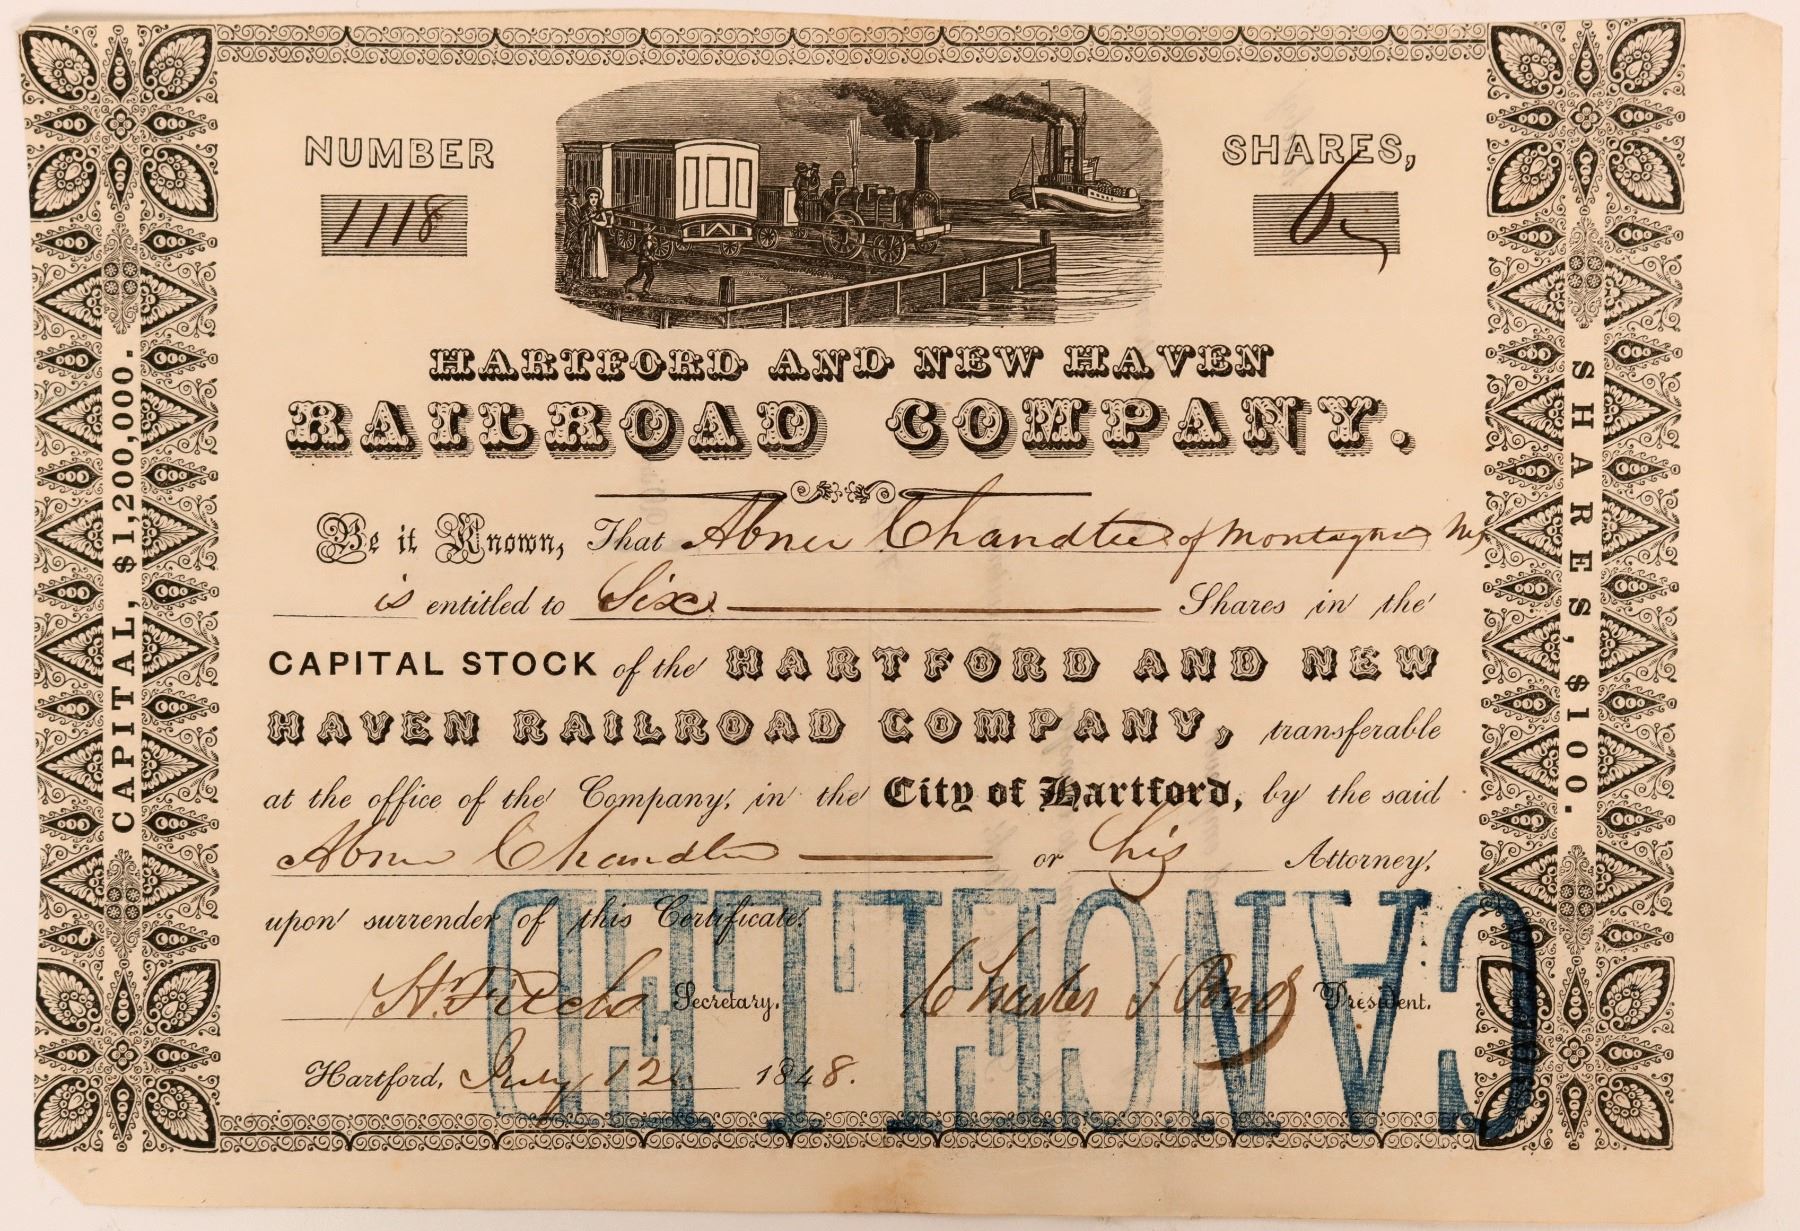 NUMBER
1118
SHARES,
6
HARTFORD AND NEW HAVEN
RAILROAD COMPANY.
Be it Known, That Abner Chandler of Montague
is entitled to Six Shares in the
CAPITAL STOCK of the HARTFORD AND NEW
HAVEN RAILROAD COMPANY, transferable
at the office of the Company, in the City of Hartford, by the said
Abner Chandler or his Attorney,
upon surrender of this Certificate.
Secretary. Charles F Pond President.
Hartford, July 12 1848.
CAPITAL, $1,200,000.
SHARES, $100.
CANCELLED